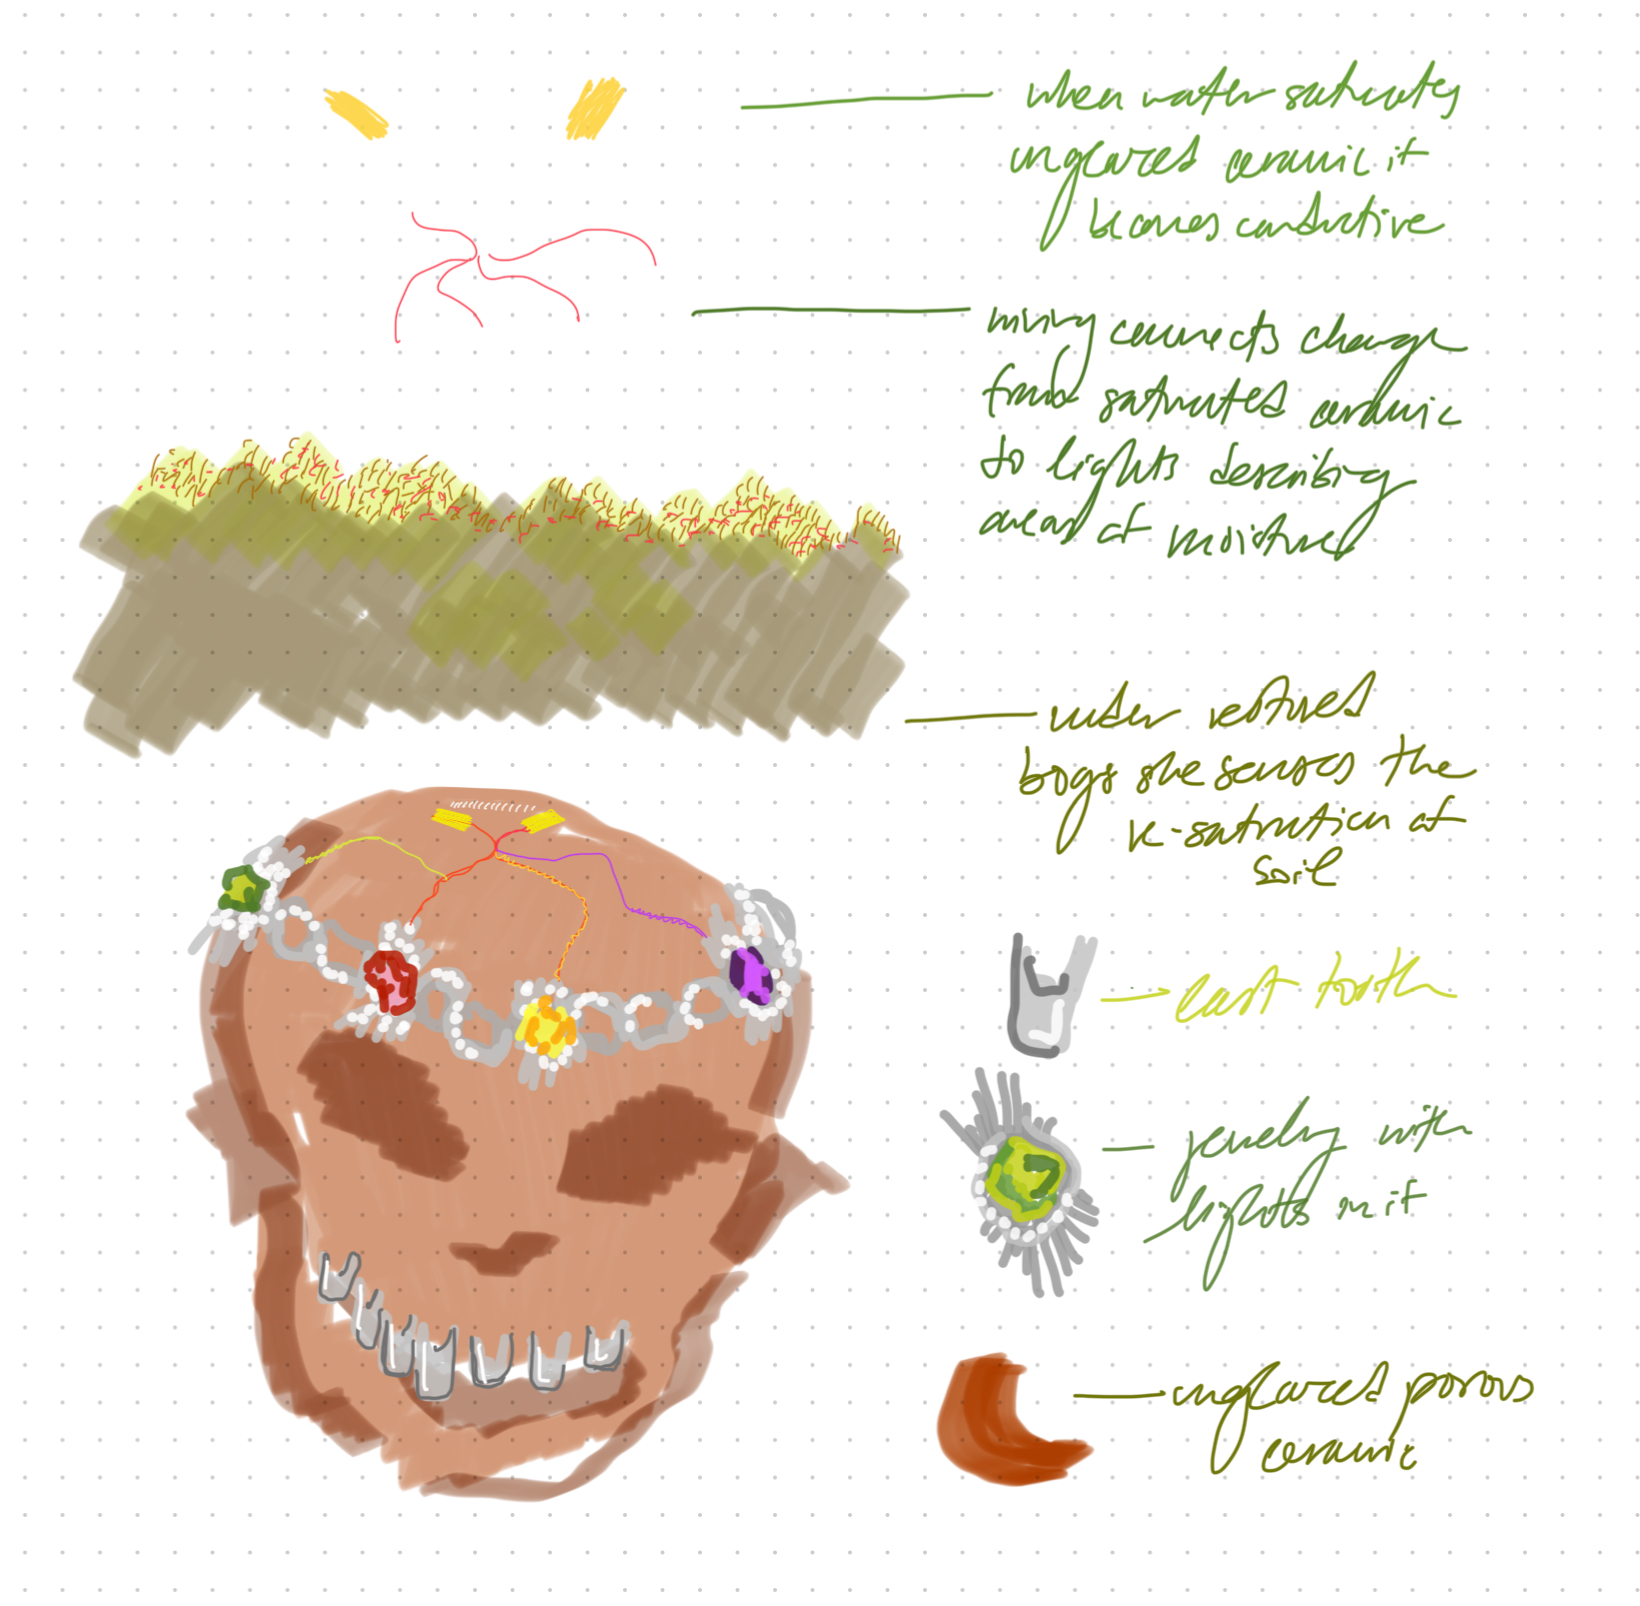 when water saturates
unglazed ceramic it
becomes conductive
wiring connects charge
from saturated ceramic
to lights describing
areas of moisture
under restored
bogs she senses the
k-saturation of
soil
cast tooth
jewelry with
lights in it
unglazed porous
ceramic